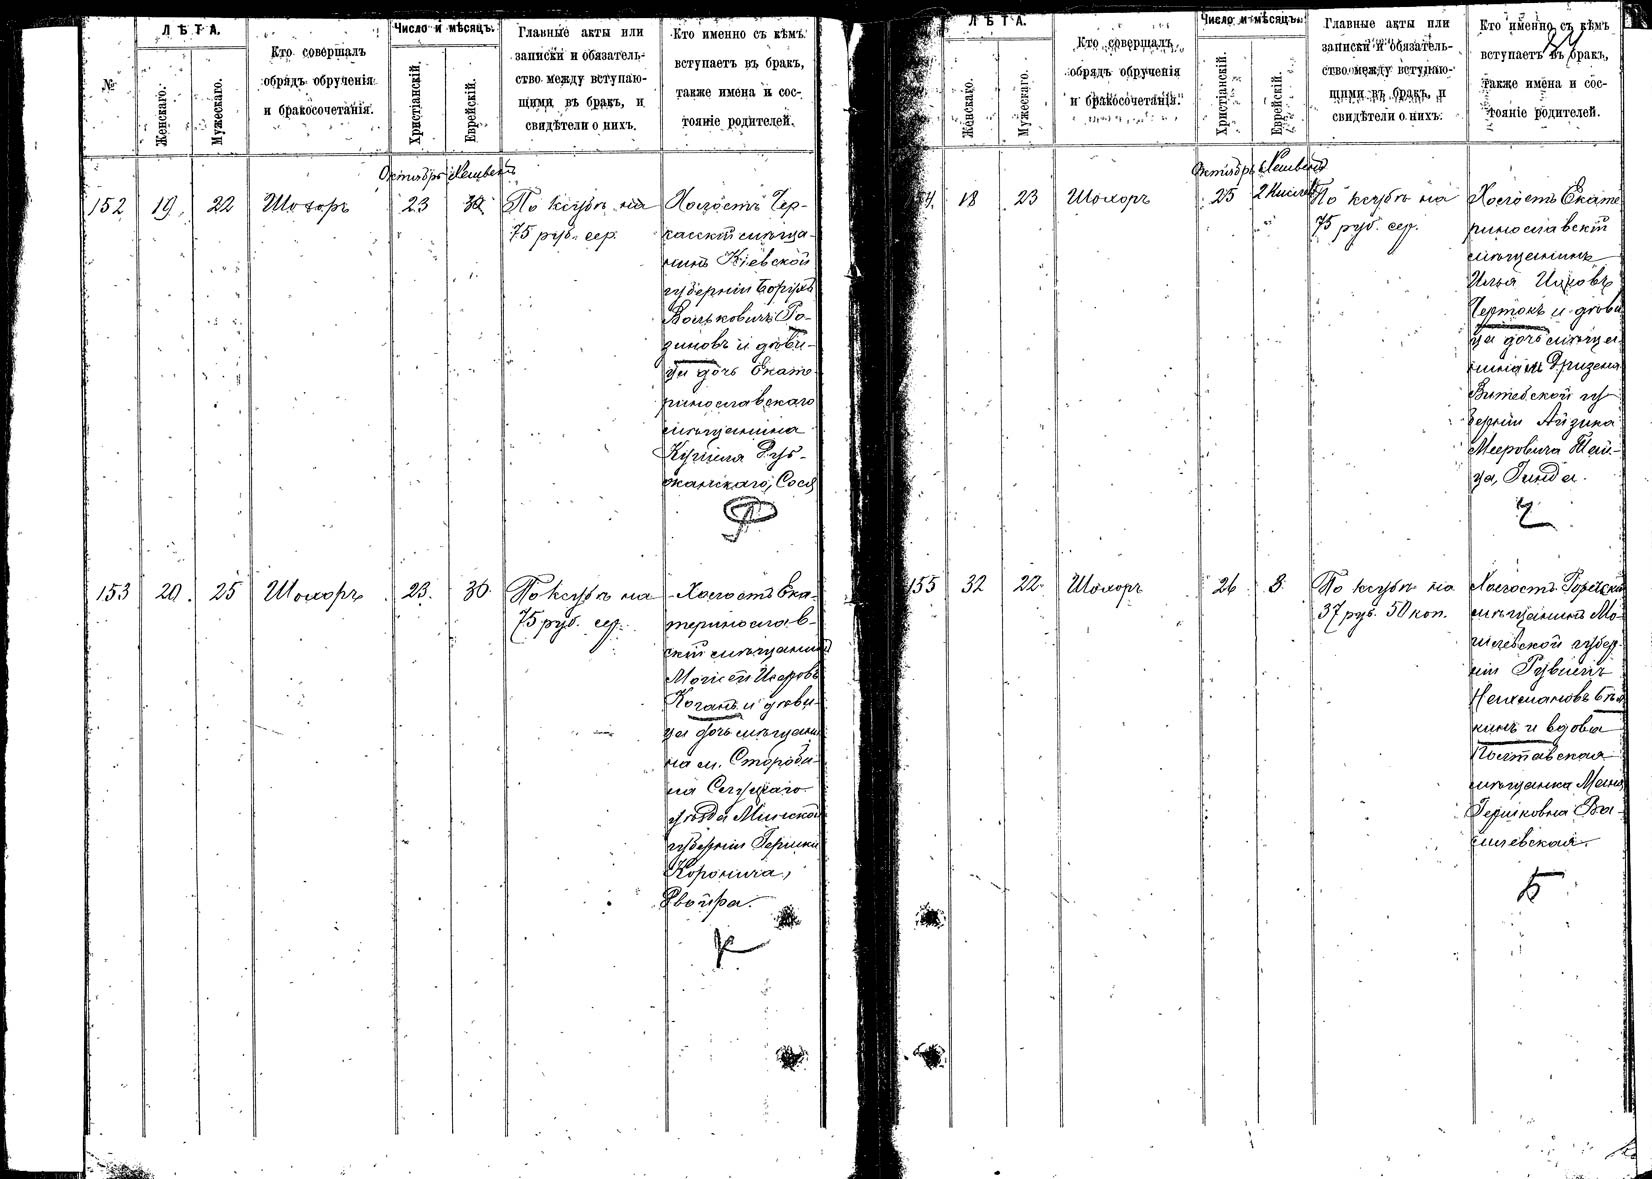 №
ЛѢТА.
Женскаго.
Мужескаго.
Кто совершалъ
обрядъ обрученія
и бракосочетанія.
Число и мѣсяцъ.
Христіанскій.
Еврейскій.
Главные акты или
записки и обязатель-
ство между вступаю-
щими въ бракъ, и
свидѣтели о нихъ.
Кто именно съ кѣмъ
вступаетъ въ бракъ,
также имена и сос-
тояніе родителей.
Октябрь Хешвенъ
152 19 22 Шохоръ 23 30 По ксубѣ на
75 руб. сер.
Холостъ Чер-
касскій мѣща-
нинъ Кіевской
губерніи Борухъ
Вольковичъ Ро-
зиновъ и дѣви-
ца дочь Екате-
ринославскаго
мѣщанина
Кушеля Дуб-
жанскаго, Сося
Р
153 20 25 Шохоръ 23 30 По ксубѣ на
75 руб. сер.
Холостъ Ека-
теринослав-
скій мѣщанинъ
Моисей Исеровъ
Коганъ и дѣви-
ца дочь мѣщани-
на м. Староби-
на Слуцкаго
уѣзда Минской
губерніи Гершки
Коронича,
Двойра.
К
ЛѢТА.
Женскаго.
Мужескаго.
Кто совершалъ
обрядъ обрученія
и бракосочетанія.
Число и мѣсяцъ.
Христіанскій.
Еврейскій.
Главные акты или
записки и обязатель-
ство между вступаю-
щими въ бракъ, и
свидѣтели о нихъ.
Кто именно съ кѣмъ
вступаетъ въ бракъ,
также имена и сос-
тояніе родителей.
Октябрь Хешвенъ
154 18 23 Шохоръ 25 2 Кислевъ По ксубѣ на
75 руб. сер.
Холостъ Екате
ринославскій
мѣщанинъ
Илья Ицковъ
Чертокъ и дѣви
ца дочь мѣща-
нина м. Дризена
Витебской гу
берніи Айзика
Мееровича Шей-
ца, Гинда.
Ч
155 32 22 Шохоръ 26 3 По ксубѣ на
37 руб. 50 коп.
Холостъ Горецкій
мѣщанинъ Мо-
гилевской губер-
ніи Рувинъ
Нехемановъ Бѣл
кинъ и вдова
Полтавская
мѣщанка Маня
Гершковна Ва-
силевская.
Б